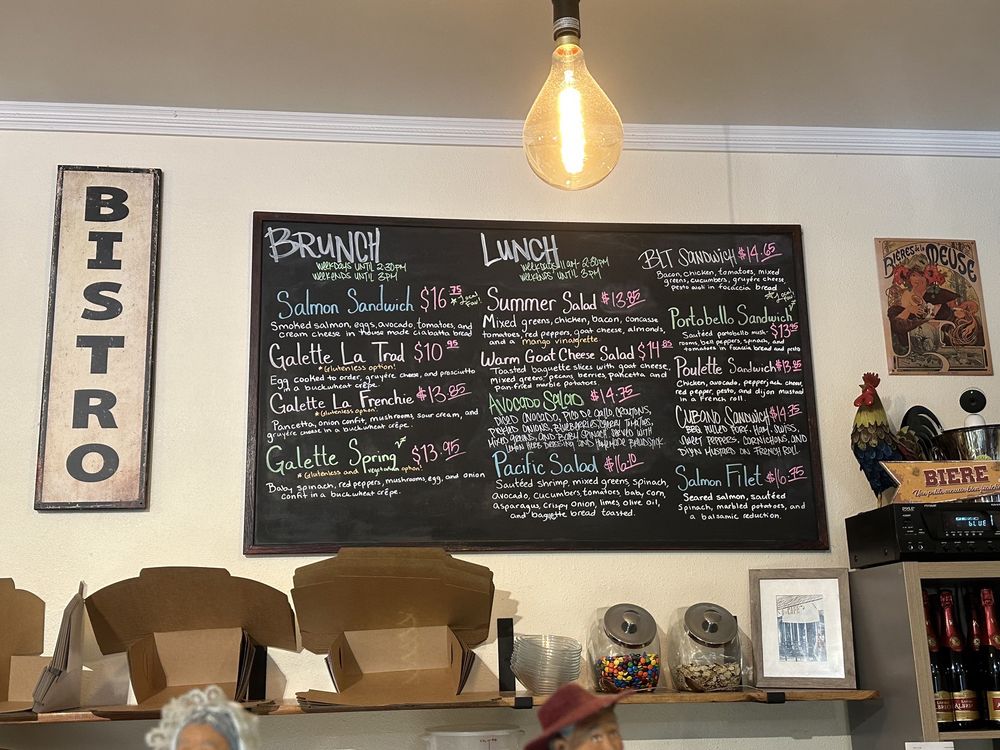 BISTRO
BRUNCH
WEEKDAYS UNTIL 2:30PM
WEEKENDS UNTIL 3PM
Salmon Sandwich $16.75
Smoked salmon, eggs, avocado, tomatoes, and
cream cheese in house made ciabatta bread
Galette La Trad $10.95
*Glutenless option!
Egg cooked to order, gruyère cheese, and prosciutto
in a buckwheat crêpe.
Galette La Frenchie $13.85
*Glutenless option!
Pancetta, onion confit, mushrooms, sour cream, and
gruyère cheese in a buckwheat crêpe.
Galette Spring $13.95
*Glutenless and vegetarian option!
Baby spinach, red peppers, mushrooms, egg, and onion
confit in a buckwheat crêpe.
LUNCH
WEEKDAYS 11AM-2:30PM
WEEKENDS UNTIL 3PM
Summer Salad $13.85
Mixed greens, chicken, bacon, concasse
tomatoes, red peppers, goat cheese, almonds,
and a mango vinaigrette
Warm Goat Cheese Salad $14.85
Toasted baguette slices with goat cheese,
mixed greens, pecans, berries, pancetta and
pan-fried marble potatoes.
AVOCADO SALAD $14.75
DICED AVOCADO, PICO DE GALLO, CROUTONS,
ONIONS, BLUEBERRIES, CHERRY TOMATOES,
MIXED GREENS, AND BABY SPINACH, SERVED WITH
DRESSING AND
Pacific Salad $16.20
Sautéed shrimp, mixed greens, spinach,
avocado, cucumbers, tomatoes, baby corn,
asparagus, crispy onion, limes, olive oil,
and baguette bread toasted.
BLT SANDWICH $14.65
Bacon, chicken, tomatoes, mixed
greens, cucumbers, gruyère cheese,
pesto aioli in focaccia bread
Portobello Sandwich
$13.95
Sautéed portobello mush-
rooms, bell peppers, spinach, and
tomatoes in focaccia bread and pesto
Poulette Sandwich $13.95
Chicken, avocado, pepperjack cheese,
red pepper, pesto, and dijon mustard
in a French roll.
CUBANO SANDWICH $14.75
BBQ PULLED PORK, HAM, SWISS,
PEPPERS, CORNICHONS, AND
DIJON MUSTARD ON FRENCH ROLL
Salmon Filet $16.75
Seared salmon, sautéed
spinach, marbled potatoes, and
a balsamic reduction.
BIÈRES de la MEUSE
BIERE
PYLE
BLUE
CAFE